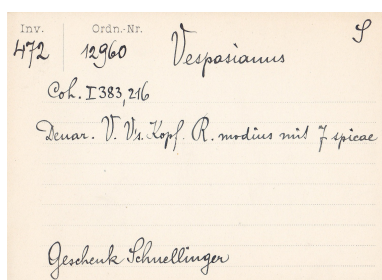 Inv. Ordn.-Nr. S
472 12960 Vespasianus
Coh. I 383, 216
Denar. V. Vs. Kopf. R. modius mit 7 spicae
Geschenk Schnellinger